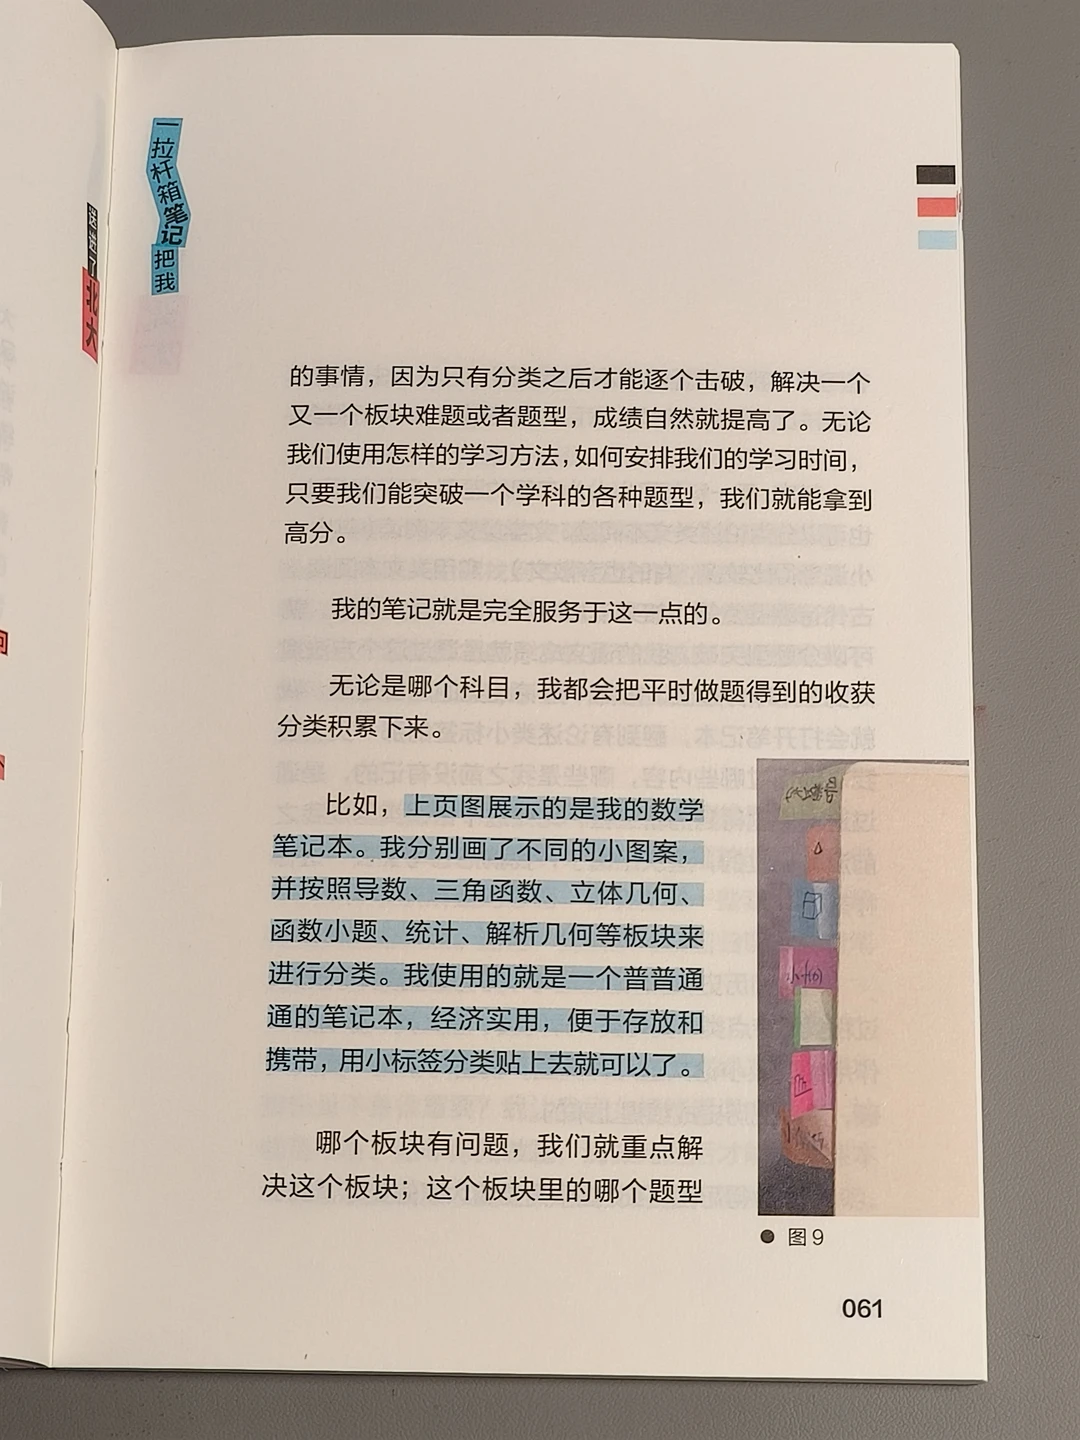 一拉杆箱笔记把我
送进了
北大
的事情，因为只有分类之后才能逐个击破，解决一个
又一个板块难题或者题型，成绩自然就提高了。无论
我们使用怎样的学习方法，如何安排我们的学习时间，
只要我们能突破一个学科的各种题型，我们就能拿到
高分。
我的笔记就是完全服务于这一点的。
无论是哪个科目，我都会把平时做题得到的收获
分类积累下来。
比如，上页图展示的是我的数学
笔记本。我分别画了不同的小图案，
并按照导数、三角函数、立体几何、
函数小题、统计、解析几何等板块来
进行分类。我使用的就是一个普普通
通的笔记本，经济实用，便于存放和
携带，用小标签分类贴上去就可以了。
哪个板块有问题，我们就重点解
决这个板块；这个板块里的哪个题型
● 图9
061